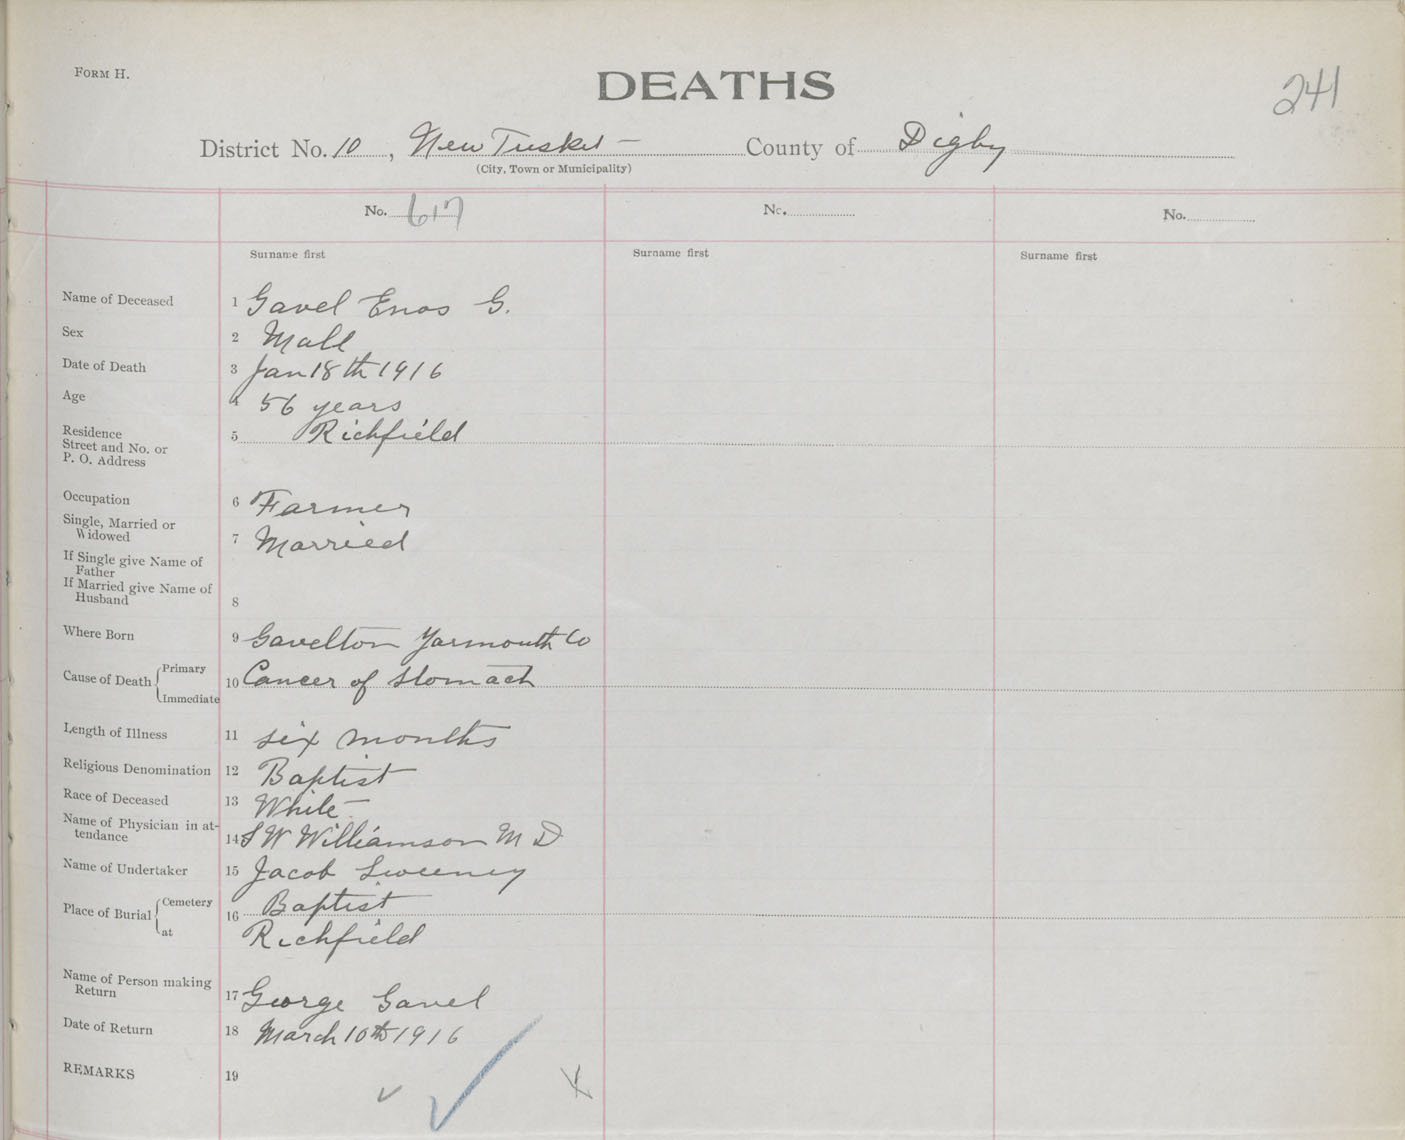 FORM H.
DEATHS
241
District No. 10, New Tusket — County of Digby
(City, Town or Municipality)
No. 617 No. No.
Surname first Surname first Surname first
Name of Deceased 1 Gavel Enos G.
Sex 2 Male
Date of Death 3 Jan 18th 1916
Age 4 56 years
Residence
Street and No. or
P. O. Address
5 Richfield
Occupation 6 Farmer
Single, Married or
Widowed
7 Married
If Single give Name of
Father
If Married give Name of
Husband
8
Where Born 9 Gavelton Yarmouth Co
Cause of Death { Primary
Immediate
10 Cancer of Stomach
Length of Illness 11 six months
Religious Denomination 12 Baptist
Race of Deceased 13 White
Name of Physician in at-
tendance
14 S W Williamson M D
Name of Undertaker 15 Jacob Sweeney
Place of Burial { Cemetery
at
16 Baptist
Richfield
Name of Person making
Return
17 George Gavel
Date of Return 18 March 10th 1916
REMARKS 19